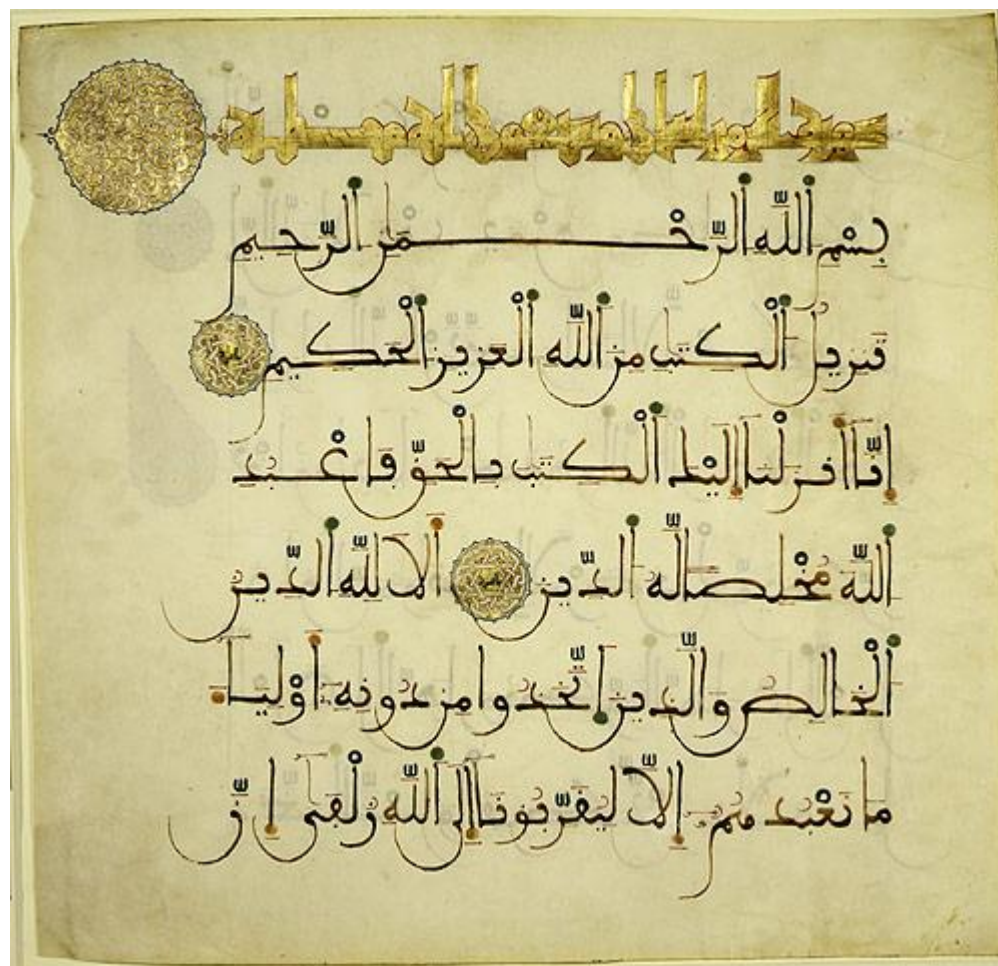 سورة الزمر
بِسْمِ اللَّهِ الرَّحْمَنِ الرَّحِيمِ
تَنزِيلُ الْكِتَبِ مِنَ اللَّهِ الْعَزِيزِ الْحَكِيمِ
إِنَّا أَنزَلْنَا إِلَيْكَ الْكِتَبَ بِالْحَقِّ فَاعْبُدِ
اللَّهَ مُخْلِصًا لَهُ الدِّينَ أَلَا لِلَّهِ الدِّينُ
الْخَالِصُ وَالَّذِينَ اتَّخَذُوا مِن دُونِهِ أَوْلِيَاءَ
مَا نَعْبُدُهُمْ إِلَّا لِيُقَرِّبُونَا إِلَى اللَّهِ زُلْفَى إِنَّ